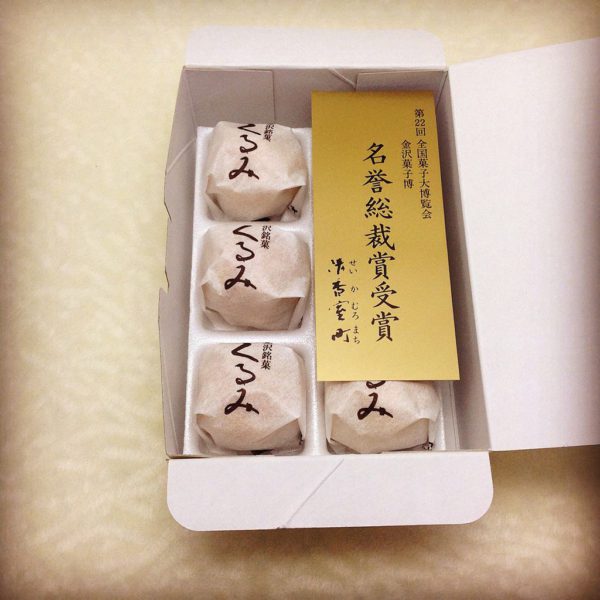 第22回 全国菓子大博覧会
金沢菓子博
名誉総裁賞受賞
せい か むろ まち
菓香室町
沢銘菓
くるみ
沢銘菓
くるみ
沢銘菓
くるみ
くるみ